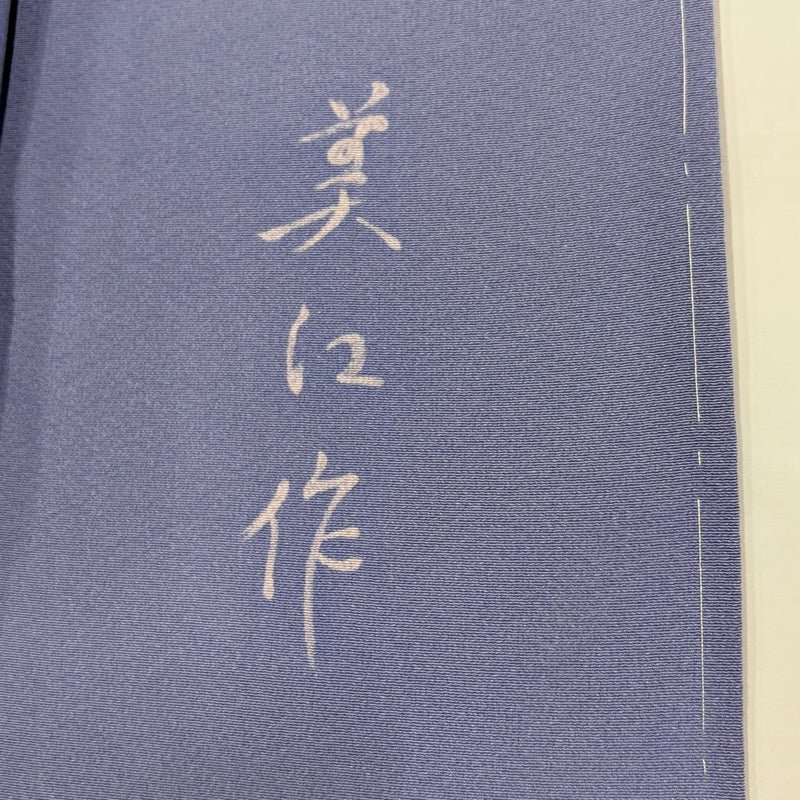 美江作